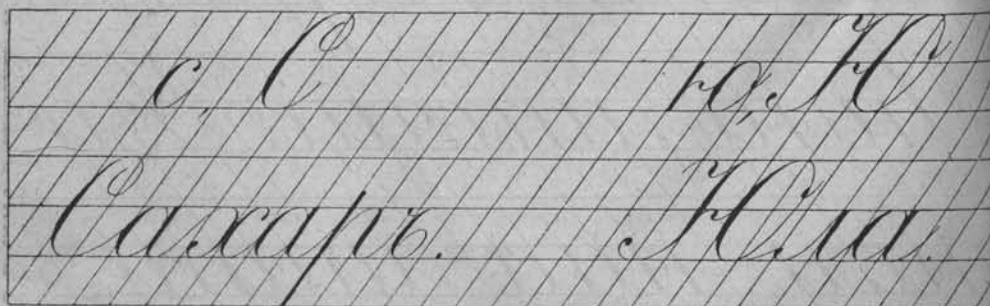 с, С ю, Ю
Сахаръ. Юла.